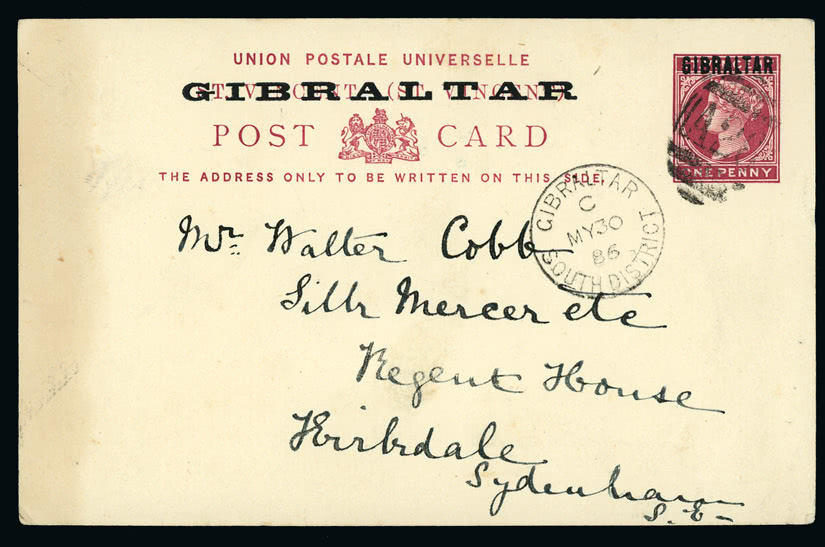 UNION POSTALE UNIVERSELLE
GIBRALTAR
ST. VINCENT (ST. VINCENT)
POST CARD
THE ADDRESS ONLY TO BE WRITTEN ON THIS SIDE.
GIBRALTAR
ONE PENNY
GIBRALTAR
C
MY 30
86
SOUTH DISTRICT
Mr. Walter Cobb
Silk Mercer etc
Regent House
Kirkdale
Sydenham
S.E-